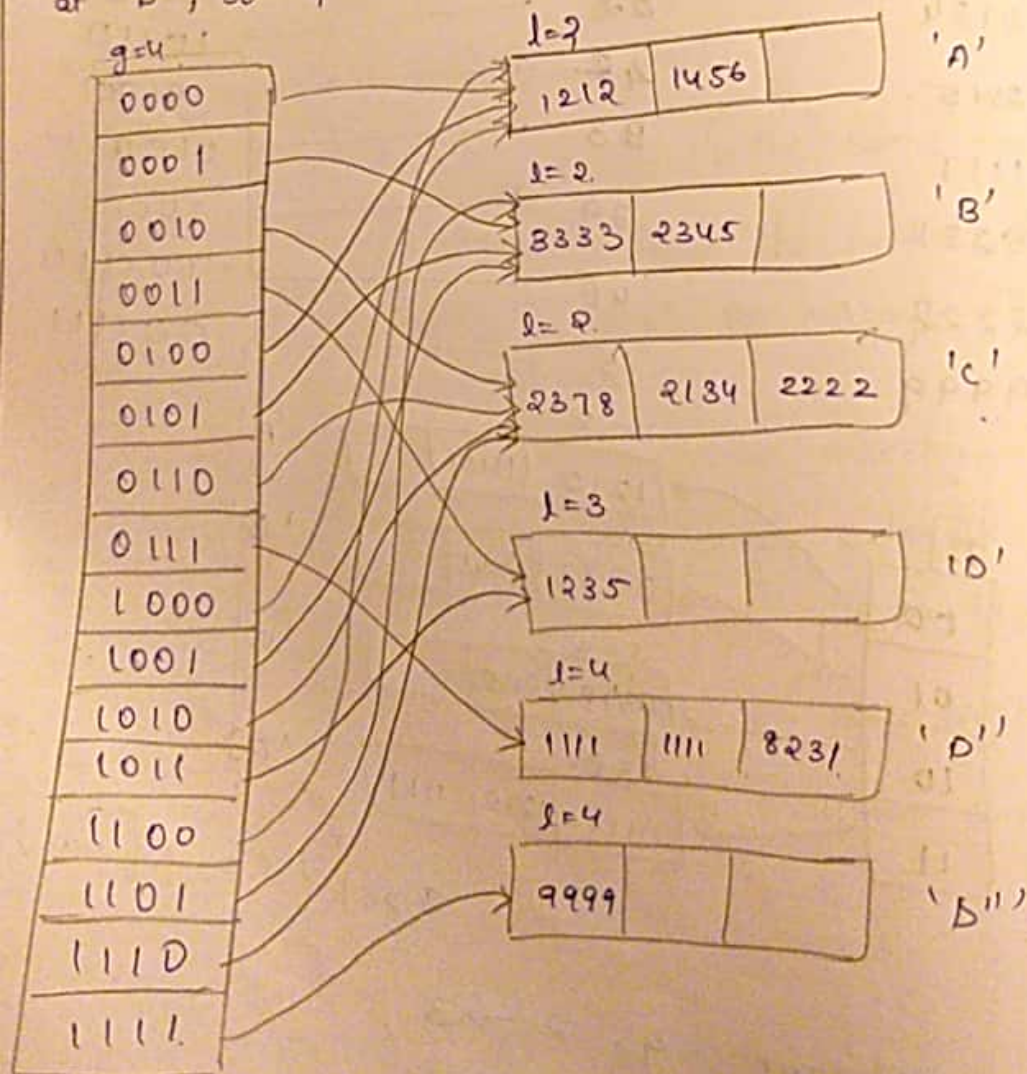 g=4
0000
0001
0010
0011
0100
0101
0110
0111
1000
1001
1010
1011
1100
1101
1110
1111.
l=2
1212 1456
'A'
l=2.
3333 2345
'B'
l=2.
2378 2134 2222
'C'
l=3
1235
'D'
l=4
1111 1111 8231.
'D''
l=4
9999
'D'''